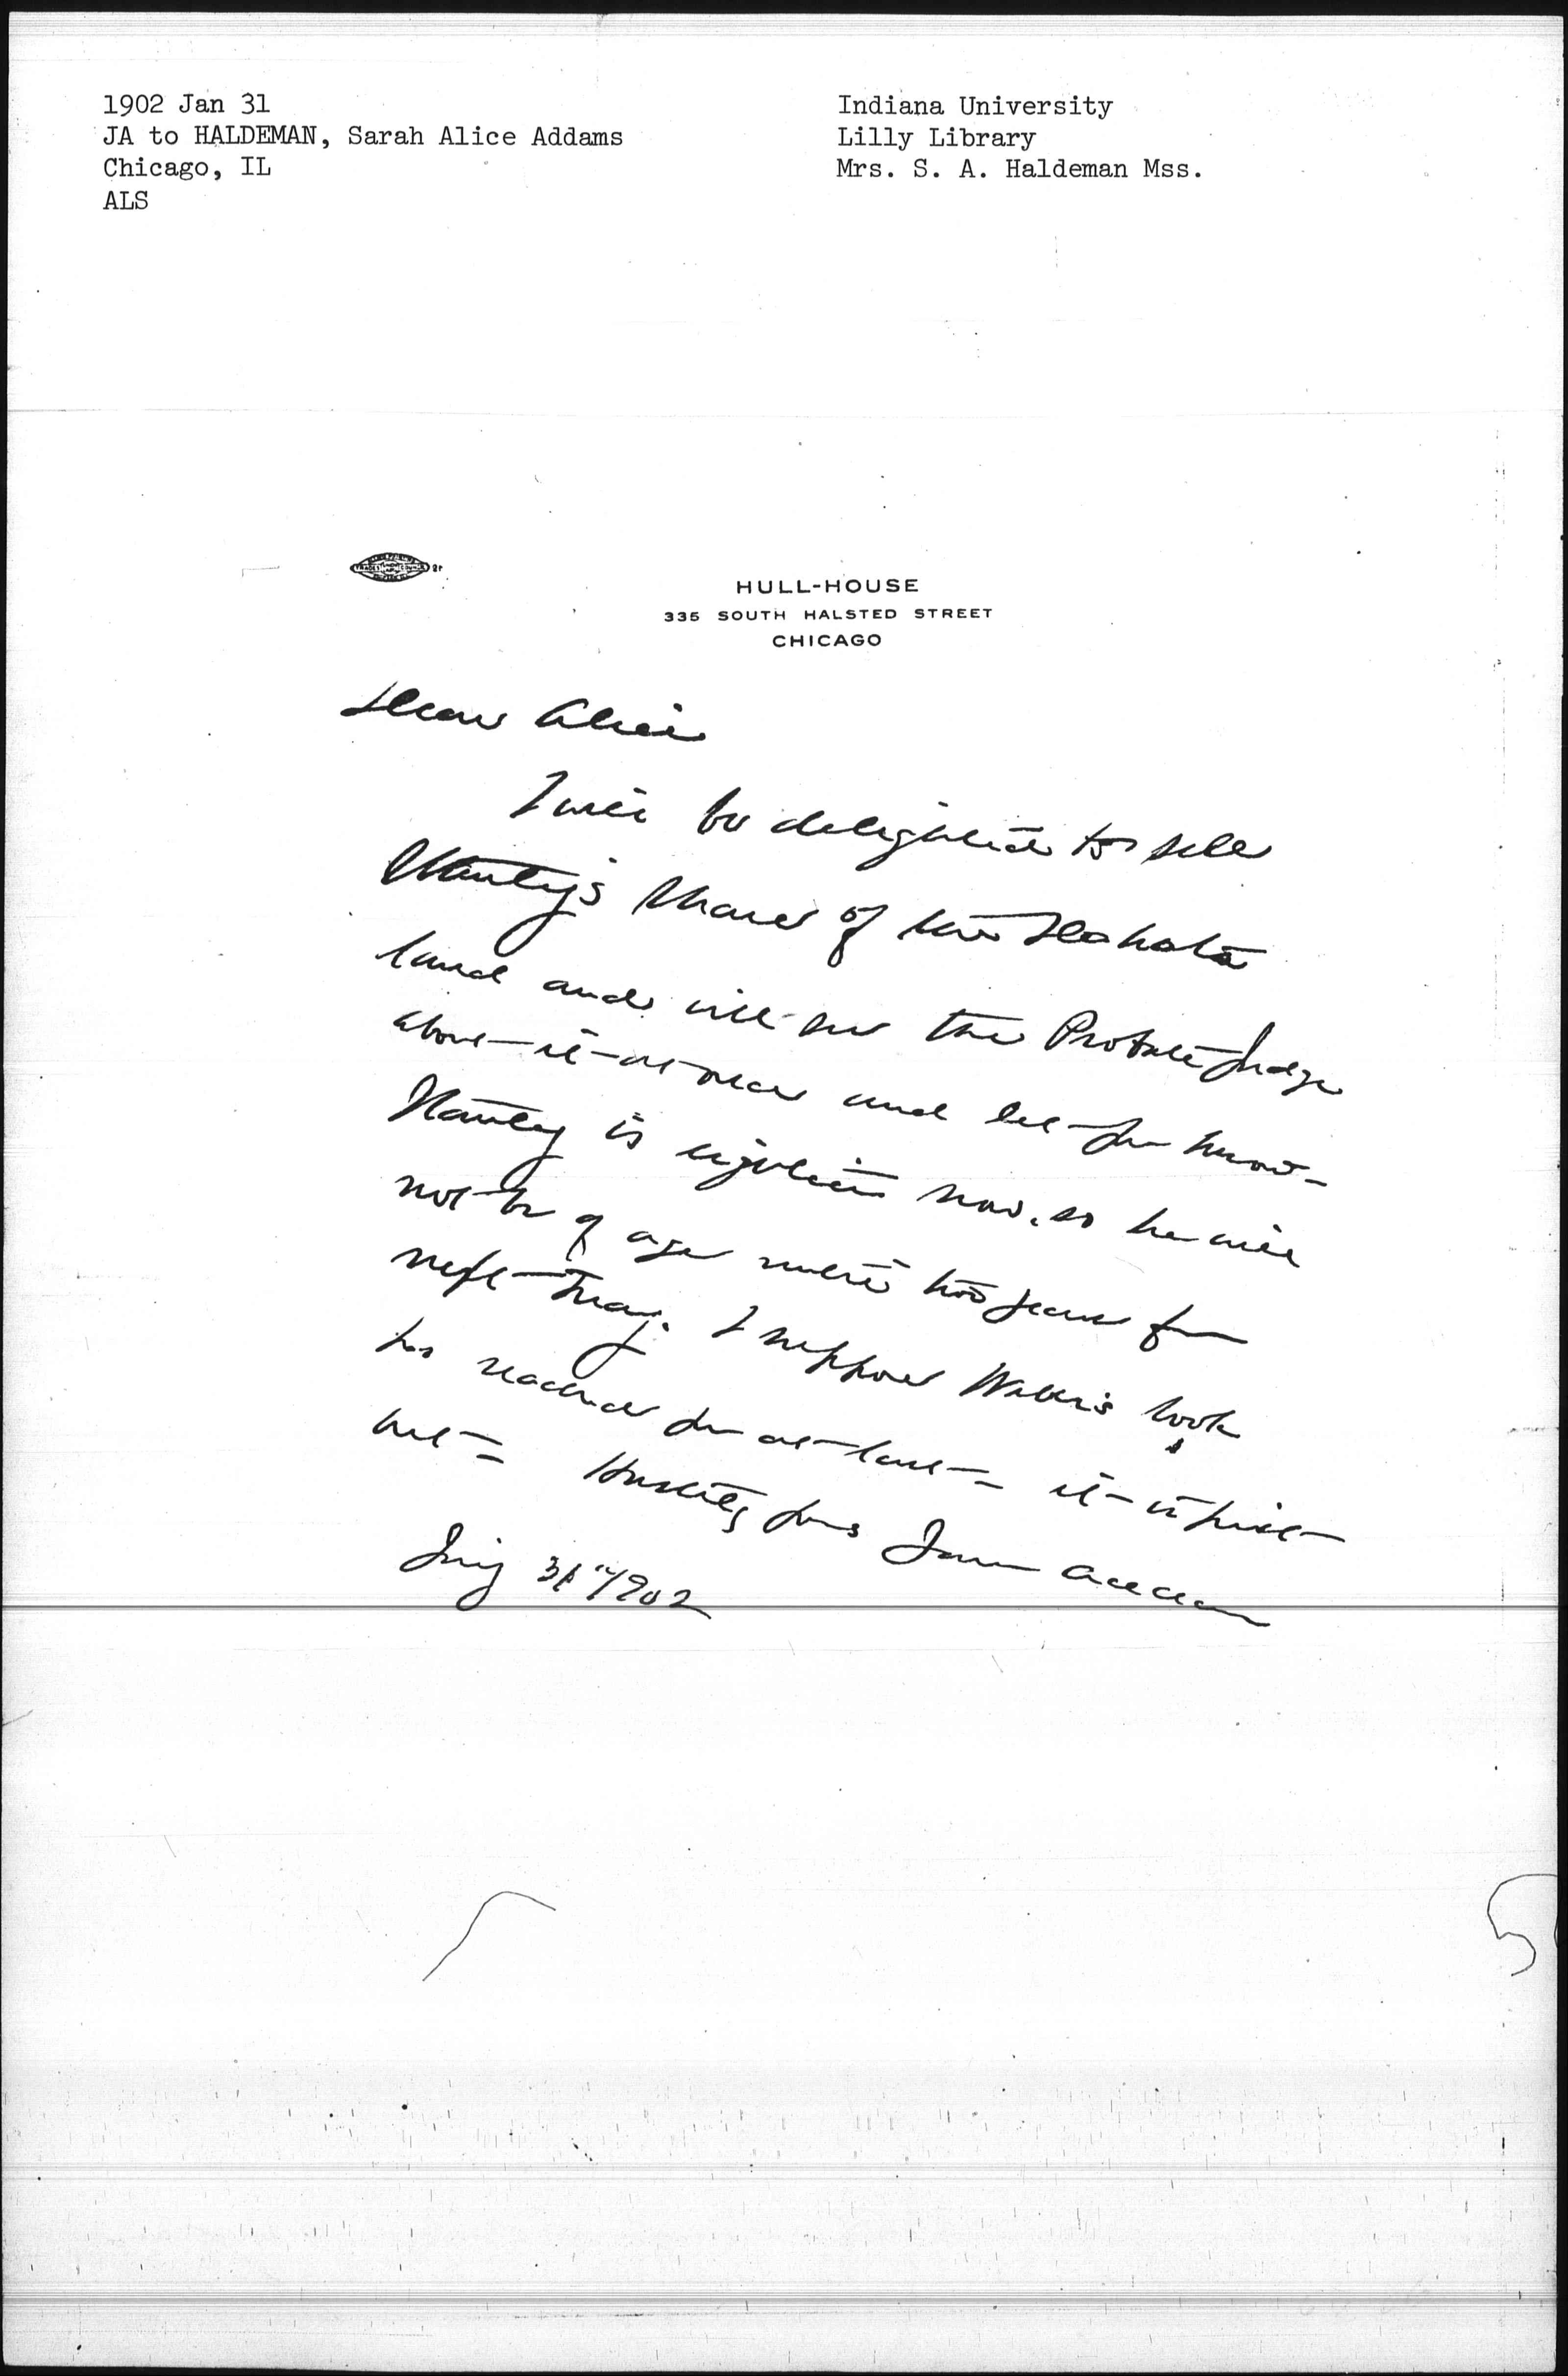 1902 Jan 31
JA to HALDEMAN, Sarah Alice Addams
Chicago, IL
ALS
Indiana University
Lilly Library
Mrs. S. A. Haldeman Mss.
HULL-HOUSE
335 SOUTH HALSTED STREET
CHICAGO
Dear Alice
I will be delighted to sell
Stanley's share of the Dakota
land and will see the Probate Judge
about it at once and let you know —
Stanley is eighteen now, so he will
not be of age until two years from
next May. I suppose Weber's book
has reached you at last — it
Hastily yours Jane Addams
31" 1902